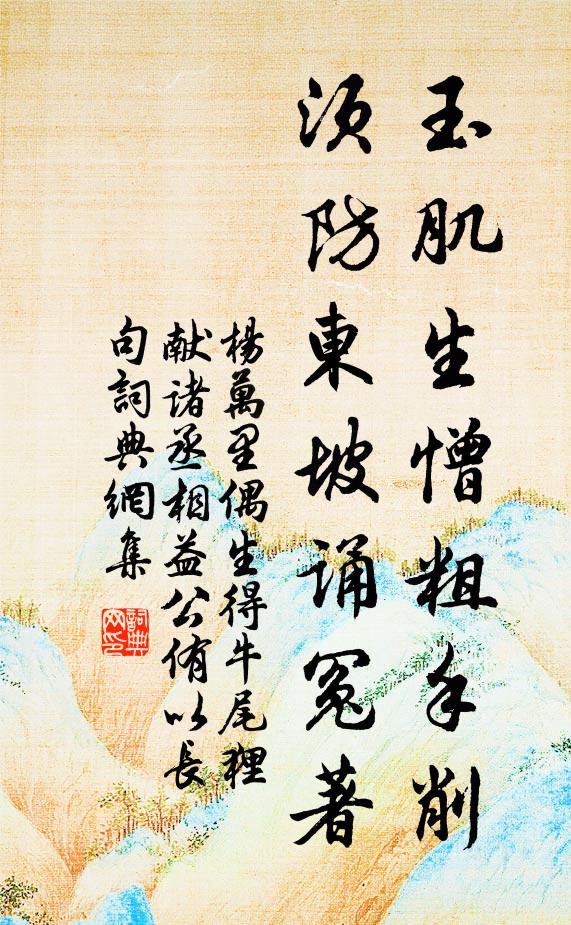 玉肌生憎粗手削
須防東坡誦冤著
楊萬里偶生得牛尾狸
献諸丞相益公侑以長
句詞典網集
詞典網印